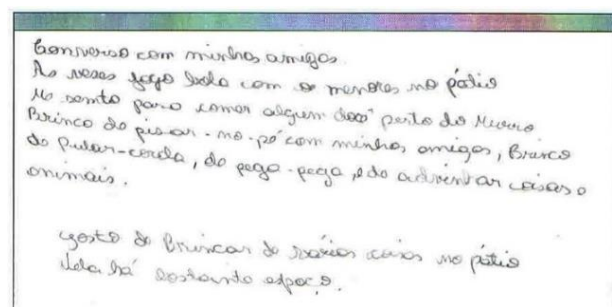 Converso com minhas amigas.
As veses jogo bola com os menores no pátio
Me sento para comer algum doce perto do Muro
Brinco de pisar-no-pé com minhas amigas, Brinco
de pular-corda, de pega-pega, e de adivinhar coisas e
animais.
gosto de Brincar de várias coisas no pátio
há bastante espaço.